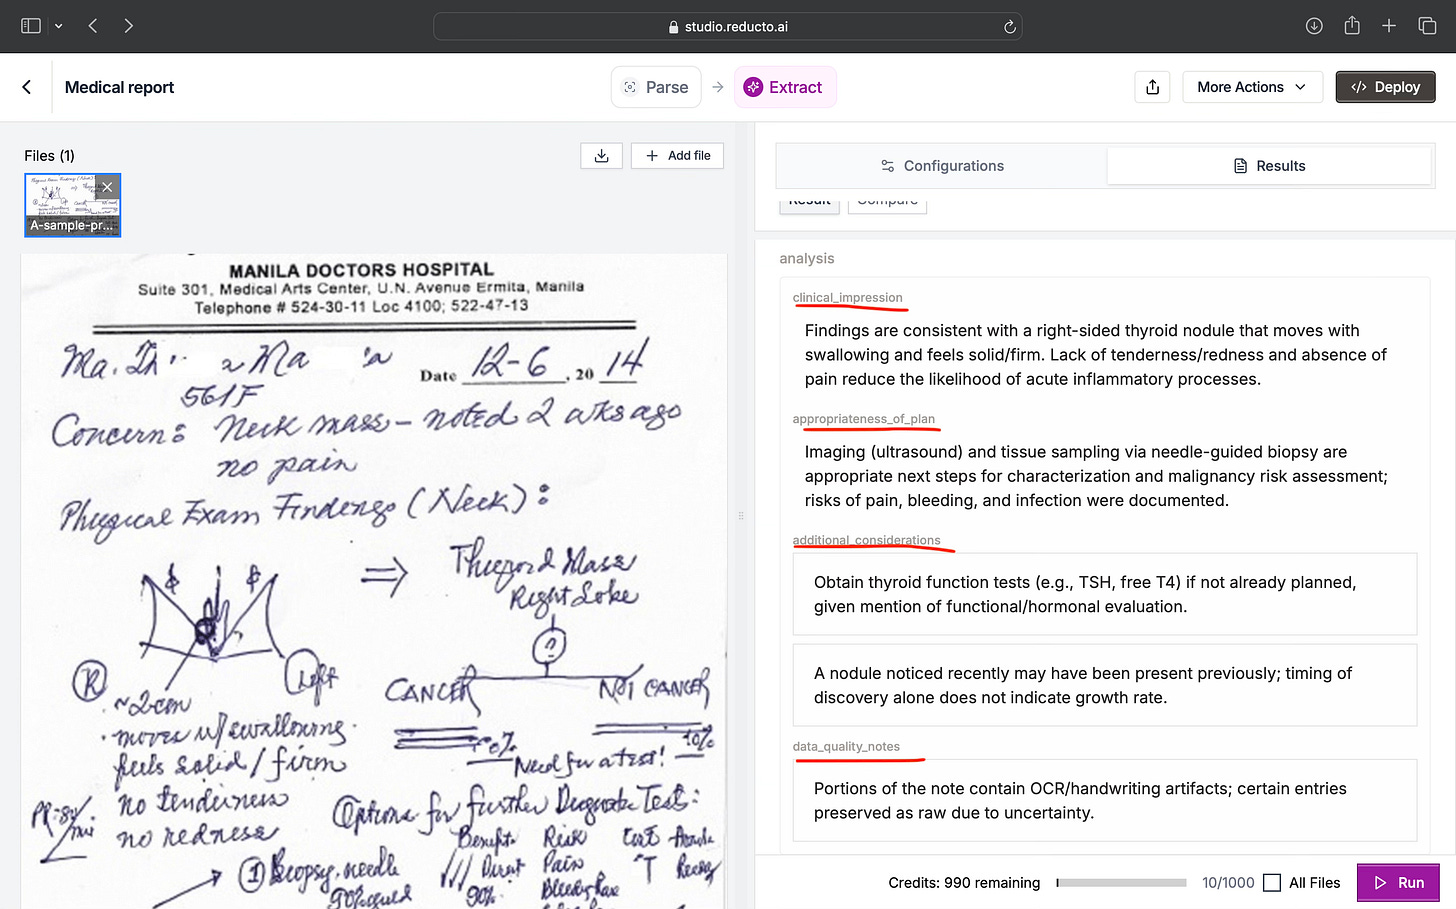 studio.reducto.ai
Medical report
Parse
Extract
More Actions
</> Deploy
Files (1)
Add file
A-sample-pr...
MANILA DOCTORS HOSPITAL
Suite 301, Medical Arts Center, U.N. Avenue Ermita, Manila
Telephone # 524-30-11 Loc 4100; 522-47-13
Ma.
Date 12-6, 20 14
Concern: Neck mass - noted 2 wks ago
no pain
Physical Exam Findings (Neck):
Thyroid Mass
Right Lobe
?
R
Left
CANCER
NOT CANCER
~2cm
moves w/ swallowing
feels solid / firm
no tenderness
no redness
Need for a test!
Options for further Diagnostic Test:
Benefit Risk Cost
1 Biopsy, needle
Direct Pain
90%
Configurations
Results
Result
Compare
analysis
clinical_impression
Findings are consistent with a right-sided thyroid nodule that moves with
swallowing and feels solid/firm. Lack of tenderness/redness and absence of
pain reduce the likelihood of acute inflammatory processes.
appropriateness_of_plan
Imaging (ultrasound) and tissue sampling via needle-guided biopsy are
appropriate next steps for characterization and malignancy risk assessment;
risks of pain, bleeding, and infection were documented.
additional_considerations
Obtain thyroid function tests (e.g., TSH, free T4) if not already planned,
given mention of functional/hormonal evaluation.
A nodule noticed recently may have been present previously; timing of
discovery alone does not indicate growth rate.
data_quality_notes
Portions of the note contain OCR/handwriting artifacts; certain entries
preserved as raw due to uncertainty.
Credits: 990 remaining
10/1000
All Files
Run